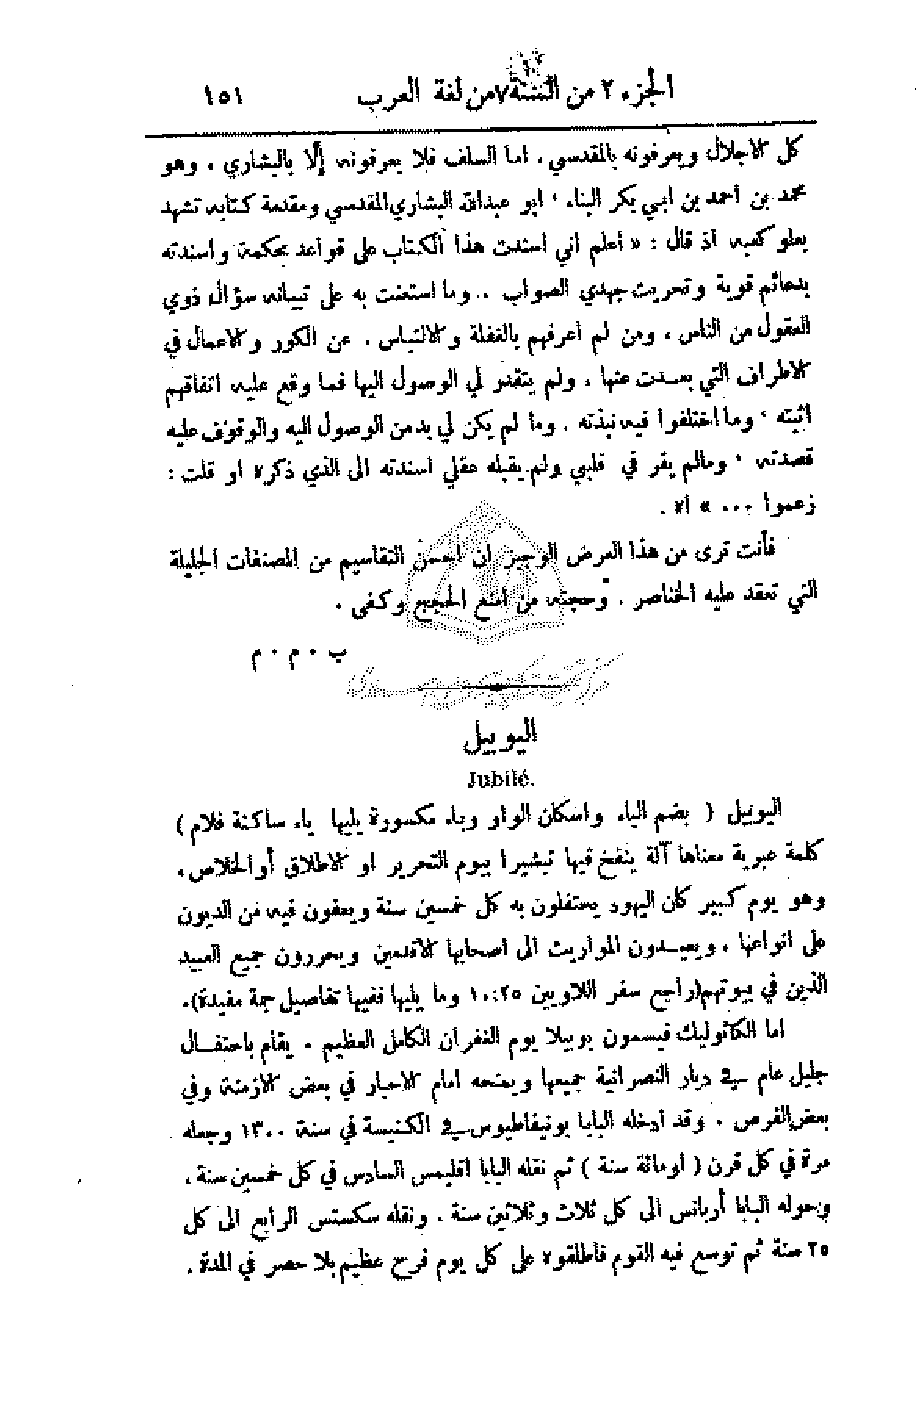 الجزء ٢ من السنة ٧ من لغة العرب ١٥١
كل الاجلال ويعرفونه بالمقدسي . اما السلف فلا يعرفونه إلّا بالبشاري . وهو
محمد بن أحمد بن ابي بكر البناء ، ابو عبدالله البشاري المقدسي ومقدمة كتابه تشهد
بعلو كعبه اذ قال : « أعلم اني اسندت هذا الكتاب على قواعد محكمة واسندته
بدعائم قوية وتحريت جهدي الصواب .. وما استعنت به على تبيانه سؤال ذوي
العقول من الناس ، ومن لم اعرفهم بالغفلة والالتباس . عن الكور والاعمال في
الاطراف التي بعدت عنها . ولم يتقدر لي الوصول اليها فما وقع عليه اتفاقهم
اثبته ، وما اختلفوا فيه نبذته . وما لم يكن لي بد من الوصول اليه والوقوف عليه
قصدته ، ومالم يقر في قلبي ولم يقبله عقلي اسندته الى الذي ذكره او قلت :
زعموا ... » اه .
فأنت ترى من هذا العرض الوجيز ان احسن التقاسيم من المصنفات الجليلة
التي تعقد عليه الخناصر . وحجته من امنع الحجج وكفى .
ب . م . م
اليوبيل
Jubilé.
اليوبيل ( بضم الياء واسكان الواو وباء مكسورة يليها ياء ساكنة فلام )
كلمة عبرية معناها آلة ينفخ فيها تبشيرا بيوم التحرير او الاطلاق أو الخلاص .
وهو يوم كبير كان اليهود يحتفلون به كل خمسين سنة ويعفون فيه من الديون
على انواعها . ويعيدون المواريث الى اصحابها الاقدمين ويحررون جميع العبيد
الذين في بيوتهم (راجع سفر اللاويين ٢٥:١٠ وما يليها ففيها تفاصيل جمة مفيدة).
اما الكاثوليك فيسمون يوبيلا يوم الغفران الكامل العظيم . يقام باحتفال
جليل عام في ديار النصرانية جميعها ويمنحه امام الاحبار في بعض الازمنة وفي
بعض الفرص . وقد ادخله البابا بونيفاطيوس في الكنيسة في سنة ١٣٠٠ وجعله
مرة في كل قرن ( او مائة سنة ) ثم نقله البابا اقليمس السادس في كل خمسين سنة .
وحوله البابا أربانس الى كل ثلاث وثلاثين سنة . ونقله سكستس الرابع الى كل
٢٥ سنة ثم توسع فيه القوم فاطلقوه على كل يوم فرح عظيم بلا حصر في المدة .